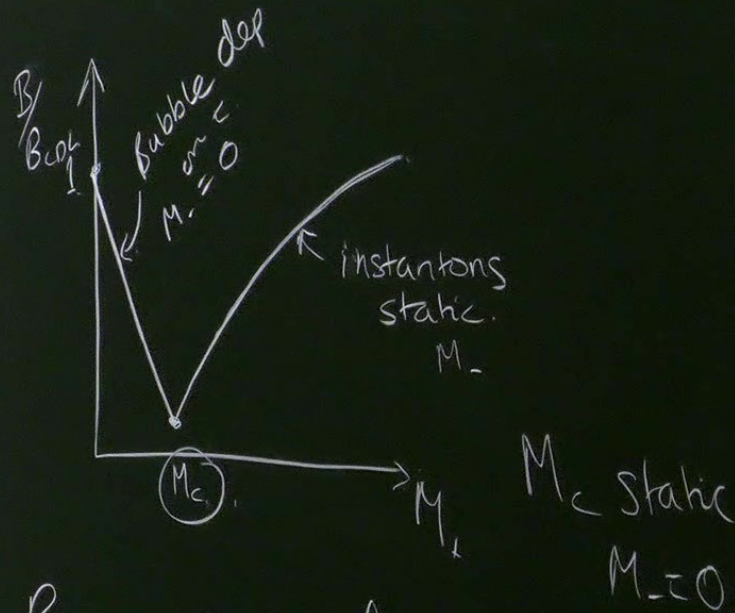 B/
B_CDL
1
Bubble dep
on τ
M_- = 0
instantons
static.
M_-
M_c
M_+
M_c static
M_- = 0